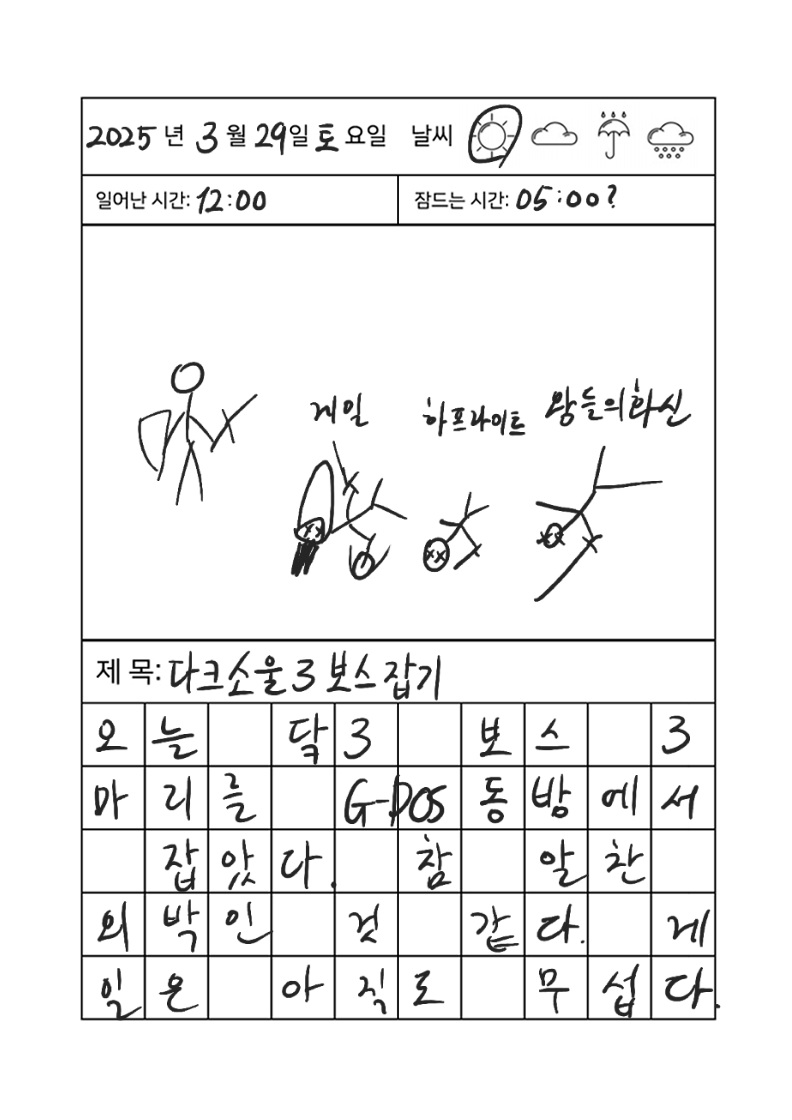 2025 년 3 월 29일 토 요일 날씨
일어난 시간: 12:00 잠드는 시간: 05:00?
게일 하프라이트 왕들의화신
제 목: 다크소울 3 보스 잡기
오늘 닼3 보스 3
마리를 G-POS 동방에서
잡았다. 참 알찬
외박인 것 같다. 게
일은 아직도 무섭다.